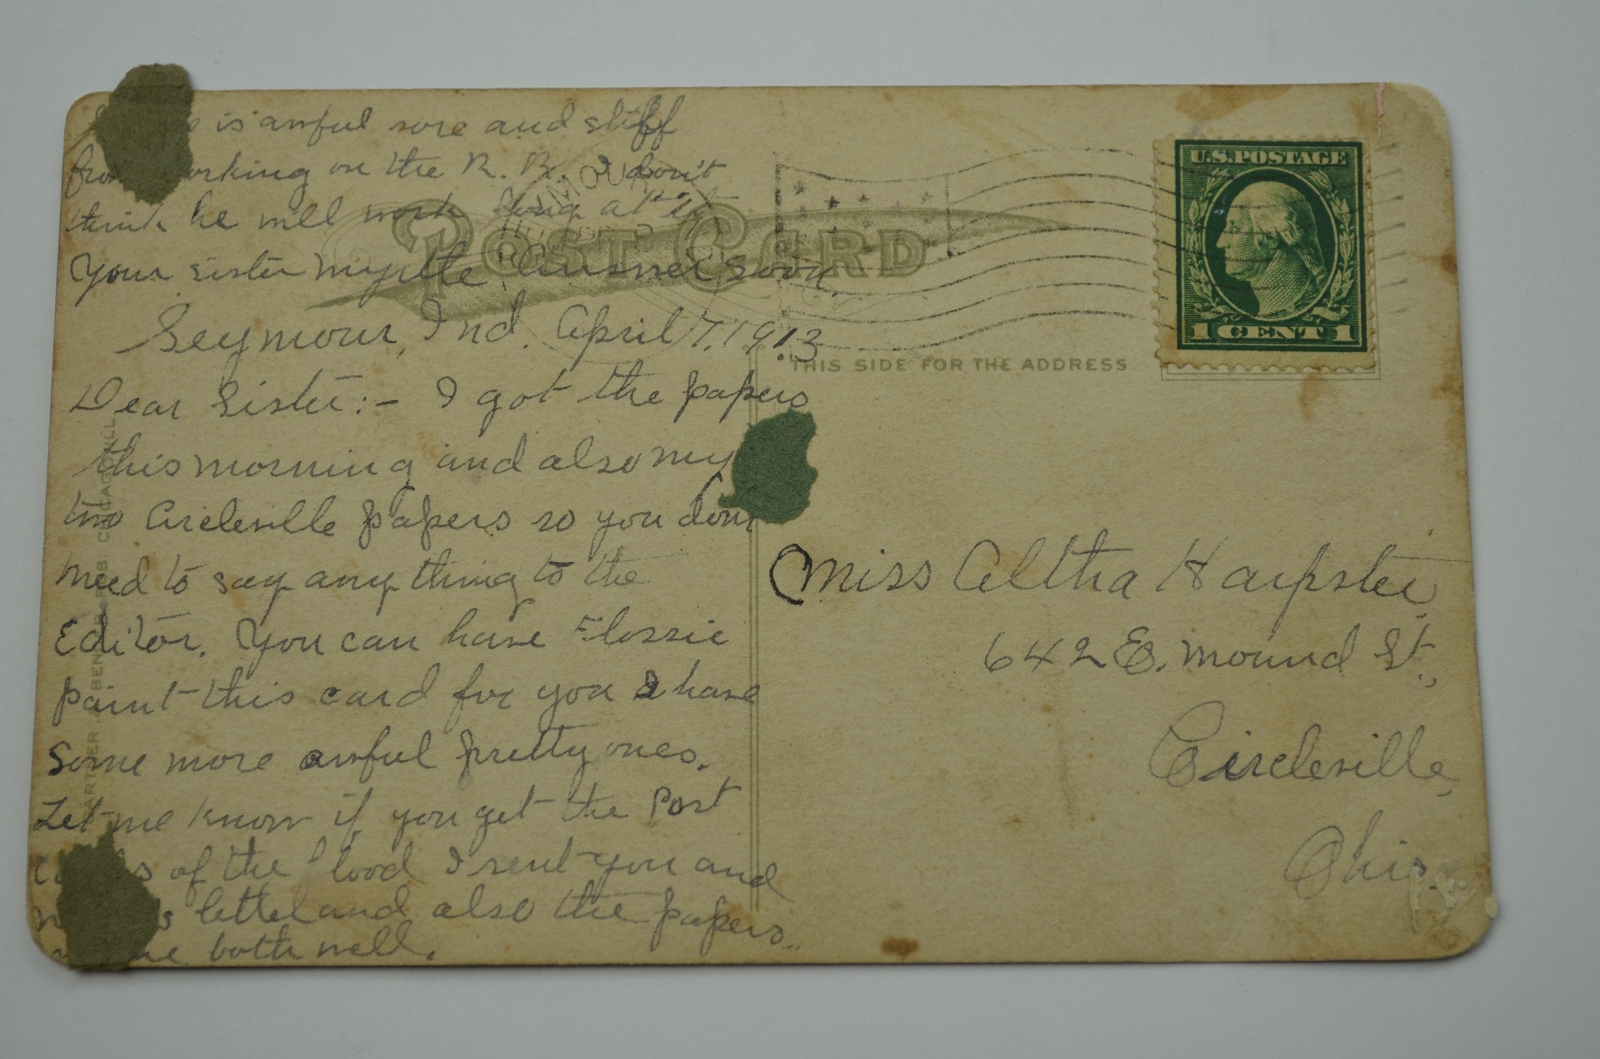 is awful sore and stiff
from working on the R. R. I don't
think he will work long at it
Your sister Myrtle Answer soon.
Seymour, Ind. April 7, 1913
Dear Sister:- I got the papers
this morning and also my
two Circleville papers so you don't
need to say any thing to the
Editor. You can have Flossie
paint this card for you I have
some more awful pretty ones.
Let me know if you get the Post
cards of the flood I sent you and
letter and also the papers.
both well.
POST CARD
THIS SIDE FOR THE ADDRESS
U.S. POSTAGE
1 CENT 1
Miss Altha Harpster,
642 E. Mound St.,
Circleville,
Ohio.